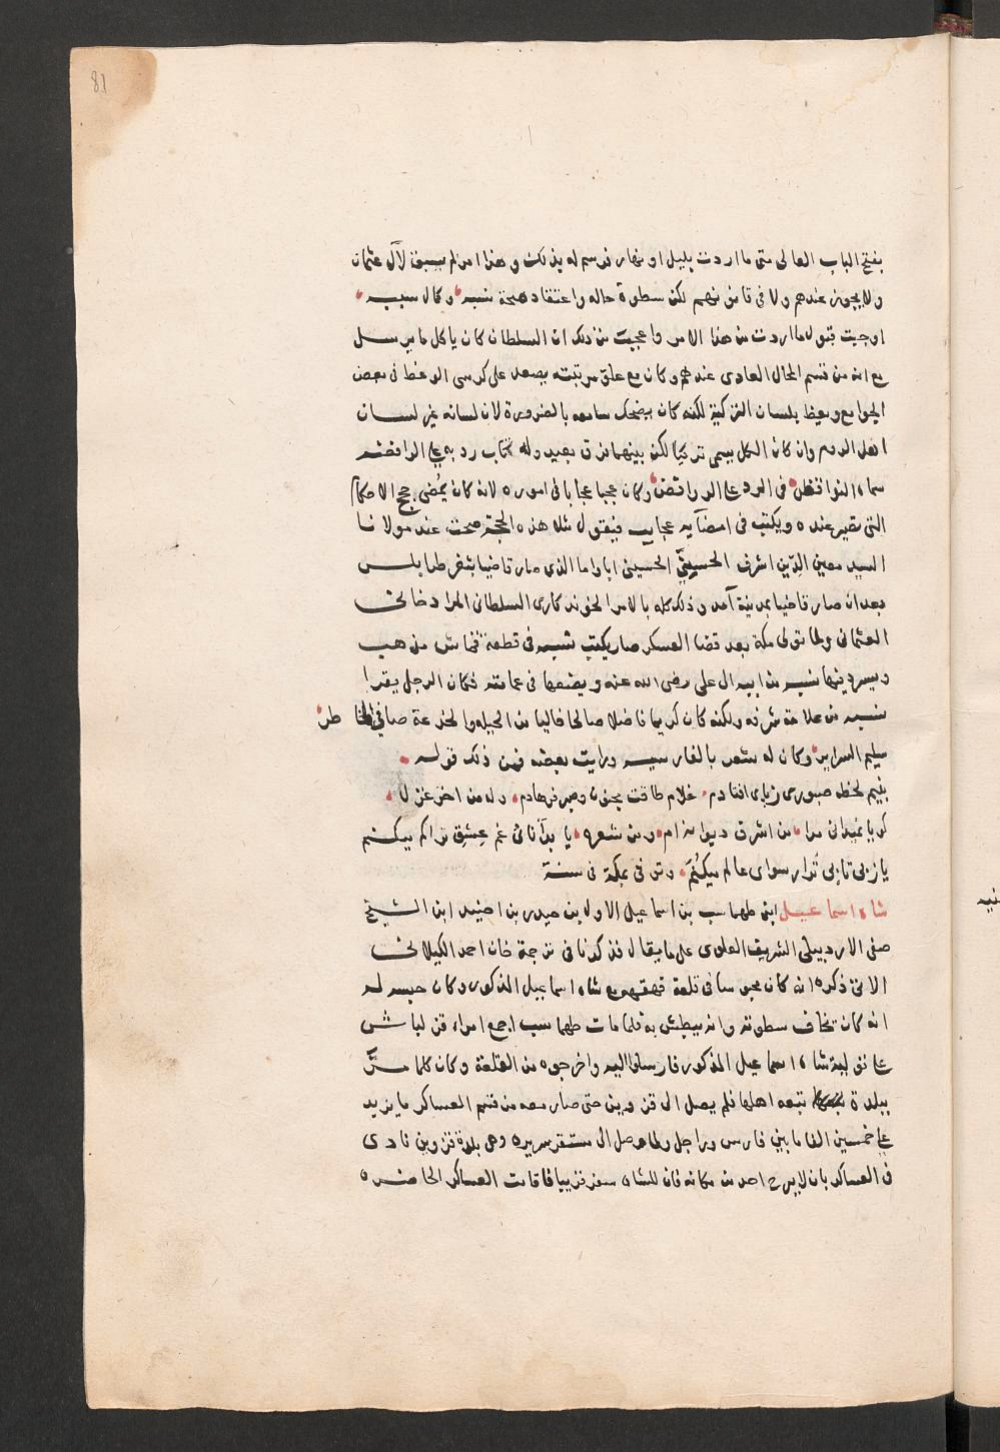 81
بفتح الباب العالى متى ما اردت بليل او نهار فرسم له بذلك وهذا امر لم يسبق لآل عثمان
ولا يجوز عندهم ولا فى قانونهم لكن سطوة حاله واعتقاد صحة نسبه وكمال سببه
اوجبت قبول ما اردت من هذا الامر واعجبت من ذلك ان السلطان كان ياكل ما يرسل
مع انه من قسم المحال العادى عندهم وكان مع علو مرتبته يصعد على كرسى الوعظ فى بعض
الجوامع ويعظ بلسان التركية لكنه كان يضحك سامعه بالضرورة لان لسانه غير لسان
اهل الروم وان كان الكل يسمى تركيا لكن بينهما فرق بعيد وله كتاب رد به على الرافضة
سماه النواقض فى الرد على الروافض وكان عجبا عجابا فى اموره لانه كان يمضى حجج الاحكام
التى تصير عنده ويكتب فى امضائه عجايب فيقول مثلا هذه الحجة صحت عند مولانا
السيد معين الدّين اشرف الحسينىّ الحسينى ابا واما الذى صار قاضيا بثغر طرابلس
بعد ان صار قاضيا بمدينة آمد وذلك كله بالامر الخوندكارى السلطانى المرادخانى
العثمانى ولما تولى مكة بعد قضا العسكر صار يكتب نسبه فى قطعة قماش مذهب
ويسرد فيها نسبه من ابيه الى على رضى الله عنه ويضعها فى عمامته فكان الرجل يقرا
نسبه من علامة شرفه ولكنه كان كريما فاضلا صالحا خاليا من الحيله والخدعة صافى الخاطر
سليم السراير وكان له شعر بالفارسيه ورايت بعضه فمن ذلك قوله
بنيم لحظه صبورى زپاى افتادم غلام طاقت مجنون وصبر فرهادم وله من اخر غزل
كويا نميدانى مرا من اشرف ديوانه ام ومن شعره يا بدآنائى غم عشق تو كم ميكنم
يا زبى تابى ترا رسواى عالم ميكنم وتوفى بمكة فى سنة
شاه اسماعيل ابن طهماسب بن اسماعيل الاول بن حيدر بن اجنيد ابن الشيخ
صفى الاردبيلى الشريف العلوى على ما يقال قد ذكرنا فى ترجمة خان احمد الكيلانى
الاتى ذكره انه كان محبوسا فى قلعة قهقهه مع شاه اسماعيل المذكور وكان حبسه له
انه كان تخاف سطوته وانه يبطش به فلما مات طهماسب اجمع امراء قزلباش
على تولية شاه اسماعيل المذكور فارسلوا اليه واخرجوه من القلعة وكان كلما مرّ
ببلدة تبعه اهلها فلم يصل الى قزوين حتى صار معه من قسم العساكر ما يزيد
على خمسين الفا ما بين فارس وراجل ولما وصل الى مستقر سريره وهى بلدة قزوين نادى
فى العساكر بان لا يبرح احد من مكانه فان للشاه سفر قريبا فاقامت العساكر الحاضره